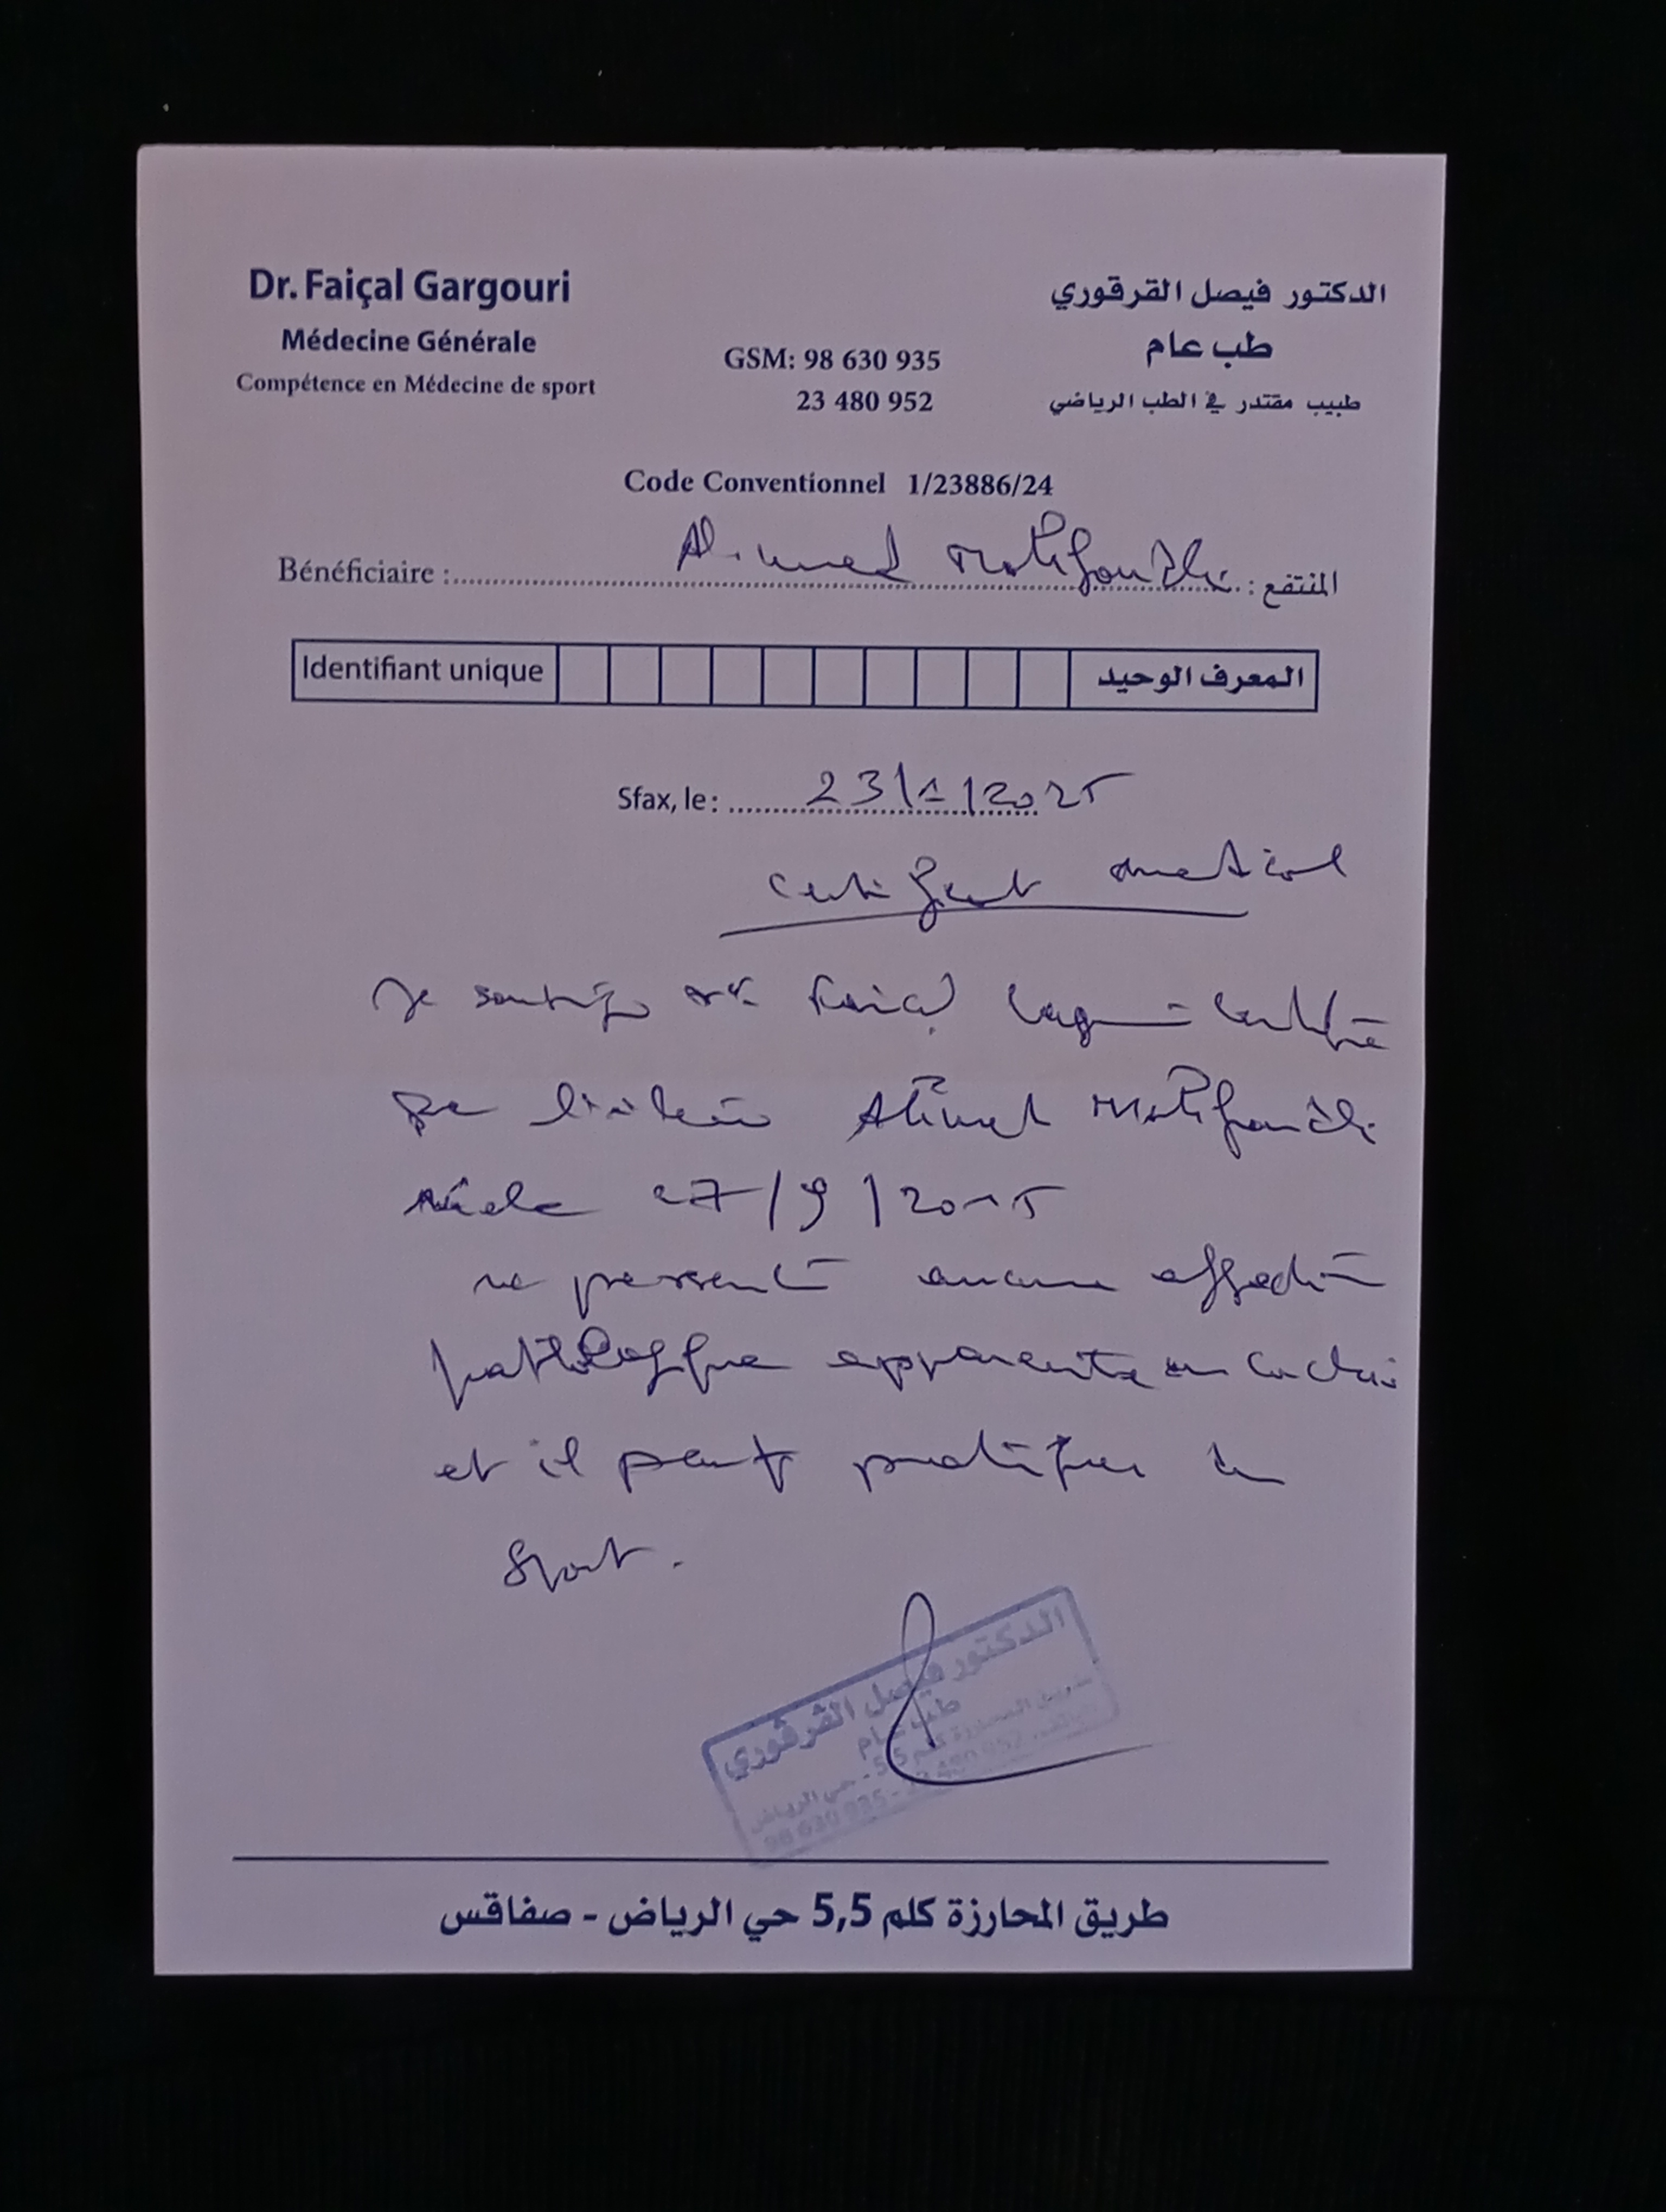 Dr. Faiçal Gargouri
Médecine Générale
Compétence en Médecine de sport
GSM: 98 630 935
23 480 952
الدكتور فيصل القرقوري
طب عام
طبيب مقتدر في الطب الرياضي
Code Conventionnel 1/23886/24
Bénéficiaire : Ahmed : المنتفع
Identifiant unique المعرف الوحيد
Sfax, le : 23/1/2025
Certificat medical
Je soussigné Faiçal
que Ahmed
née le 27/9/2015
ne presente aucune affection
pathologique apparente
et il peut pratiquer le
sport.
الدكتور فيصل القرقوري
طب عام
5,5 - حي الرياض
98 630 935 - 23 480 952
طريق المحارزة كلم 5,5 حي الرياض - صفاقس